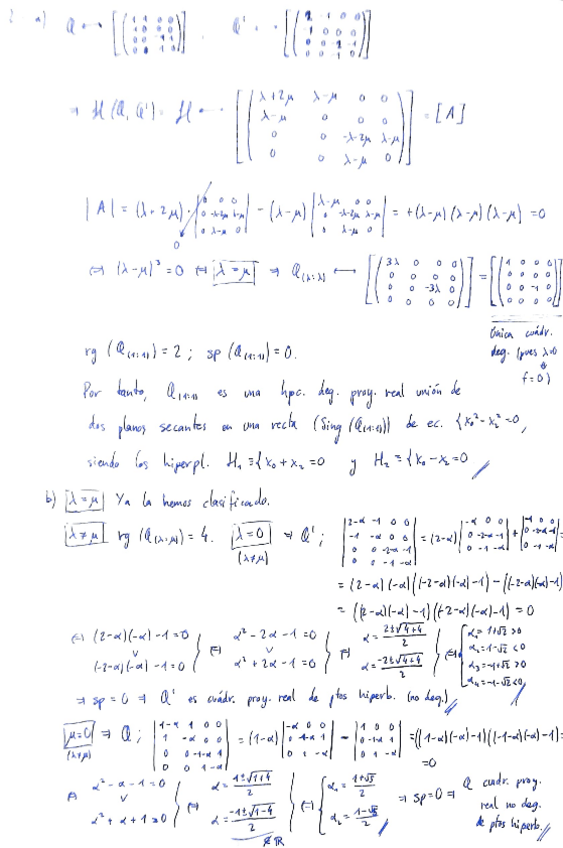 2 a) Q ⟷ [(1 1 0 0; 1 0 0 0; 0 0 -1 1; 0 0 1 0)], Q' ⟷ [(2 -1 0 0; -1 0 0 0; 0 0 -2 -1; 0 0 -1 0)]
⇒ H(Q, Q') = H ⟷ [(λ+2μ λ-μ 0 0; λ-μ 0 0 0; 0 0 -λ-2μ λ-μ; 0 0 λ-μ 0)] = [A]
|A| = (λ+2μ)·|0 0 0; 0 -λ-2μ λ-μ; 0 λ-μ 0| - (λ-μ)|λ-μ 0 0; 0 -λ-2μ λ-μ; 0 λ-μ 0| = +(λ-μ)(λ-μ)(λ-μ) = 0
0
⇔ (λ-μ)³ = 0 ⇔ λ=μ ⇒ Q(λ=λ) ⟷ [(3λ 0 0 0; 0 0 0 0; 0 0 -3λ 0; 0 0 0 0)] = [(1 0 0 0; 0 0 0 0; 0 0 -1 0; 0 0 0 0)]
única cuádr.
deg. (pues λ=0
⇓
f=0)
rg (Q(1:1)) = 2 ; sp (Q(1:1)) = 0.
Por tanto, Q(1:1) es una hpc. deg. proy. real unión de
dos planos secantes en una recta (Sing (Q(1:1))) de ec. {x₀²-x₂²=0,
siendo los hiperpl. H₁ ≡ {x₀+x₂=0 y H₂ ≡ {x₀-x₂=0
b) λ=μ Ya la hemos clasificado.
λ≠μ rg (Q(λ:μ)) = 4. λ=0 (λ≠μ) ⇒ Q' ; |2-α -1 0 0; -1 -α 0 0; 0 0 -2-α -1; 0 0 -1 -α| = (2-α)|-α 0 0; 0 -2-α -1; 0 -1 -α| + |-1 0 0; 0 -2-α -1; 0 -1 -α| =
= (2-α)(-α)((-2-α)(-α)-1) - ((-2-α)(-α)-1)
= ((2-α)(-α)-1)((-2-α)(-α)-1) = 0
⇔ (2-α)(-α)-1=0 ∨ (-2-α)(-α)-1=0 } ⇔ α²-2α-1=0 ∨ α²+2α-1=0 } ⇔ α = 2±√4+4 / 2, α = -2±√4+4 / 2 } ⇔ { α₁=1+√2>0, α₂=1-√2<0, α₃=-1+√2>0, α₄=-1-√2<0
⇒ sp=0 ⇒ Q' es cuádr. proy. real de ptos hiperb. (no deg.)
μ=0 (λ≠μ) ⇒ Q ; |1-α 1 0 0; 1 -α 0 0; 0 0 -1-α 1; 0 0 1 -α| = (1-α)|-α 0 0; 0 -1-α 1; 0 1 -α| - |1 0 0; 0 -1-α 1; 0 1 -α| = ((1-α)(-α)-1)((-1-α)(-α)-1) =
=0
α²-α-1=0 ∨ α²+α+1=0 } ⇔ α = 1±√1+4 / 2, α = -1±√1-4 / 2 ∉ ℝ } ⇔ { α₁ = 1+√5 / 2, α₂ = 1-√5 / 2 ⇒ sp=0 ⇒ Q cuádr. proy.
real no deg.
de ptos hiperb.